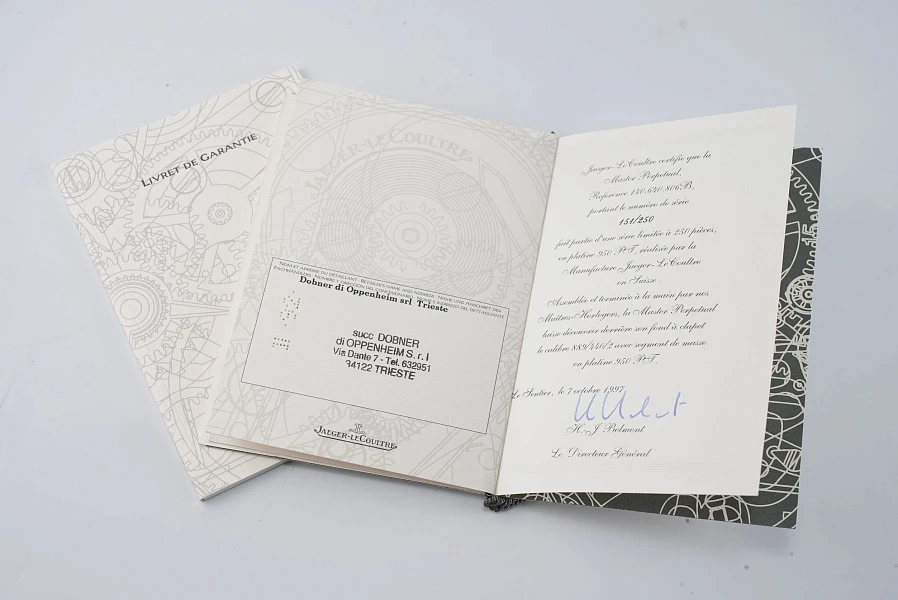 LIVRET DE GARANTIE
JAEGER-LECOULTRE
NOM ET ADRESSE DU DÉTAILLANT - RETAILER'S NAME AND ADDRESS - NAME UND ANSCHRIFT DES
FACHHÄNDLERS - NOMBRE Y DIRECCIÓN DEL CONCESIONARIO - NOME E INDIRIZZO DEL DETTAGLIANTE
Dobner di Oppenheim srl Trieste
succ DOBNER
di OPPENHEIM S. r. l
Via Dante 7 - Tel. 632951
34122 TRIESTE
JAEGER-LECOULTRE
Jaeger-LeCoultre certifie que la
Master Perpetual,
Référence 140.640.806B,
portant le numéro de série
151/250
fait partie d'une série limitée à 250 pièces,
en platine 950 PT, réalisée par la
Manufacture Jaeger-LeCoultre
en Suisse.
Assemblée et terminée à la main par nos
Maîtres-Horlogers, la Master Perpetual
laisse découvrir derrière son fond à clapet
le calibre 889/440/2 avec segment de masse
en platine 950 PT.
Le Sentier, le 7 octobre 1997
H.-J. Belmont
Le Directeur Général
15